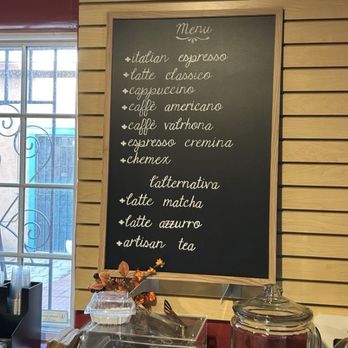 Menu
+italian espresso
+latte classico
+cappuccino
+caffè americano
+caffè valrhona
+espresso cremina
+chemex
l'alternativa
+latte matcha
+latte azzurro
+artisan tea